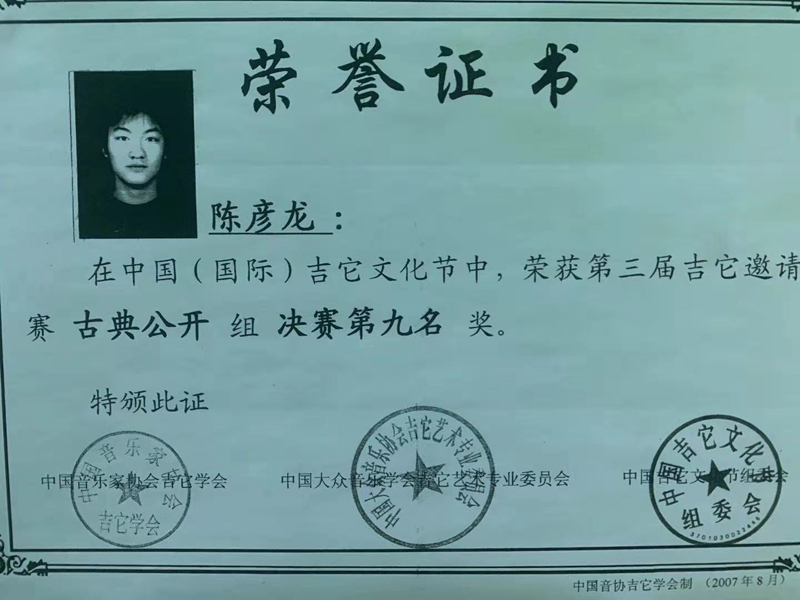 荣誉证书
陈彦龙：
在中国（国际）吉它文化节中，荣获第三届吉它邀请
赛 古典公开 组 决赛第九名 奖。
特颁此证
中国音乐家协会吉它学会
中国大众音乐学会吉它艺术专业委员会
中国吉它文化节组委会
中国音乐家协会
吉它学会
中国大众音乐协会吉它艺术专业委员会
中国吉它文化节
组委会
中国音协吉它学会制 （2007年8月）